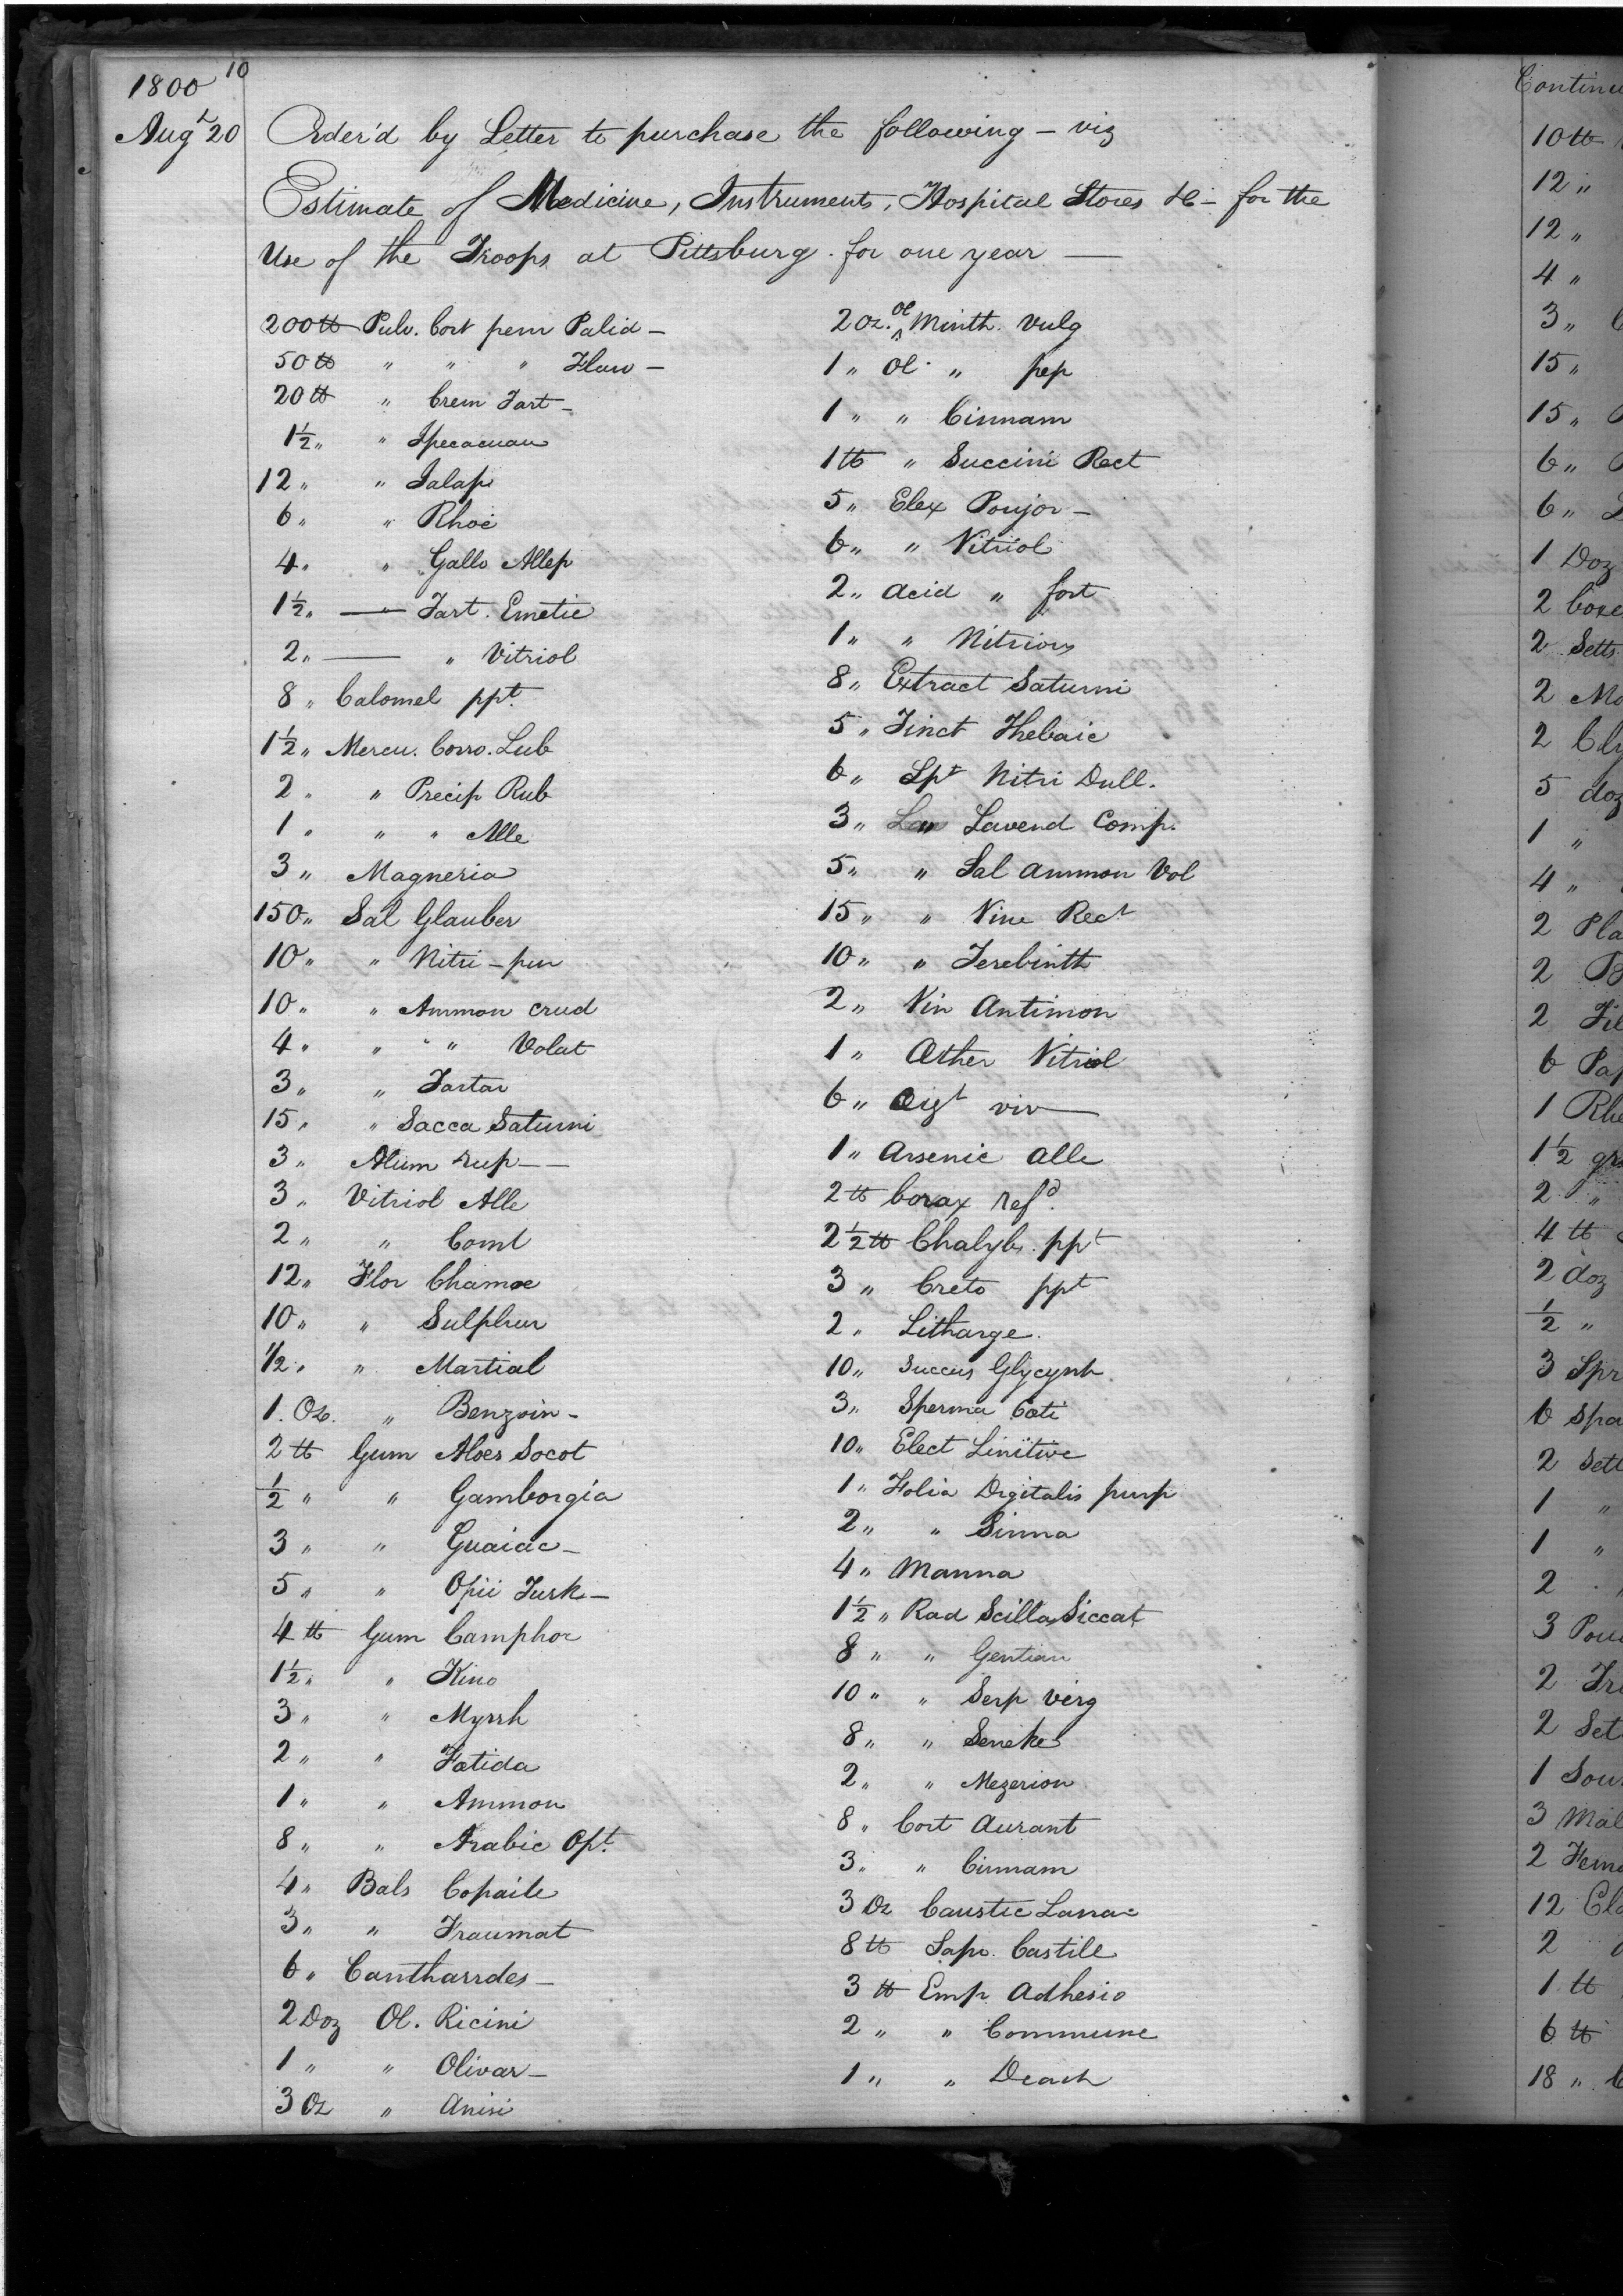 10
1800
Augt 20 Order'd by Letter to purchase the following – viz
Estimate of Medicine, Instruments, Hospital Stores &c – for the
Use of the Troops at Pittsburg. for one year —
200 lb Pulv. Cort peru Palid –
50 lb " " " Flav –
20 lb " Crem Tart –
1½ " " Ipecacuan
12 " " Jalap
6 " " Rhoei
4 " " Gallo Allep
1½ " — Tart. Emetic
2 " — " Vitriol
8 " Calomel ppt.
1½ " Mercu. Corro. Sub
2 " " Precip Rub
1 " " " Alle
3 " Magneria
150 " Sal Glauber
10 " " Nitri – pur
10 " " Ammon crud
4 " " " Volat
3 " " Tartar
15 " " Sacca Saturni
3 " Alum rup —
3 " Vitriol Alle
2 " " Comt
12 " Flor Chamoe
10 " " Sulphur
1/2 " " Martial
1. Oz. " Benzoin –
2 lb Gum Aloes Socot
½ " " Gamborgia
3 " " Guaiac –
5 " " Opii Turk –
4 lb Gum Camphor
1½ " " Kino
3 " " Myrrh
2 " " Fœtida
1 " " Ammon
8 " " Arabic Opt.
4 " Bals Copaile
3 " " Traumat
6 " Cantharrdes –
2 Doz Ol. Ricini
1 " " Olivar –
3 Oz " Anisi
2 oz. Ol Minth. vulg
1 " Ol " pep
1 " " Cinnam
1 lb " Succini Rect
5 " Elex Poujor –
6 " " Vitriol
2 " acid " fort
1 " " Nitrious
8 " Extract Saturni
5 " Tinct Thebaic
6 " Spt Nitri Dull.
3 " Lavend Comp.
5 " " Sal ammon Vol
15 " " Vine Rect
10 " " Terebinth
2 " Vin Antimon
1 " Œther Vitriol
6 " Aigt viv —
1 " Arsenic alle
2 lb borax refd.
2½ lb Chalyb. ppt
3 " Creto ppt
2 " Litharge.
10 " Succus Glycyrrh.
3 " Sperma Cœti
10 " Elect Linitive
1 " Folia Digitalis purp
2 " " Sinna
4 " Manna
1½ " Rad Scilla Siccat
8 " " Gentian
10 " " Serp verg
8 " " Seneke
2 " " Mezerion
8 " Cort Aurant
3 " " Cinnam
3 Oz Caustic Lunac
8 lb Sapo. Castile
3 lb Emp Adhesio
2 " " Commune
1 " " Diach
10 lb
12 "
12 "
4 "
3 "
15 "
15 "
6 "
6 "
1 Doz
2
2 Setts
2
2
5 doz
1 "
4 "
2
2
2
6
1
1½
2 "
4 lb
2 doz
½ "
3
6
2
1 "
1 "
2
3
2
2
1
3
2
12
2
1 lb
6 lb
18 "